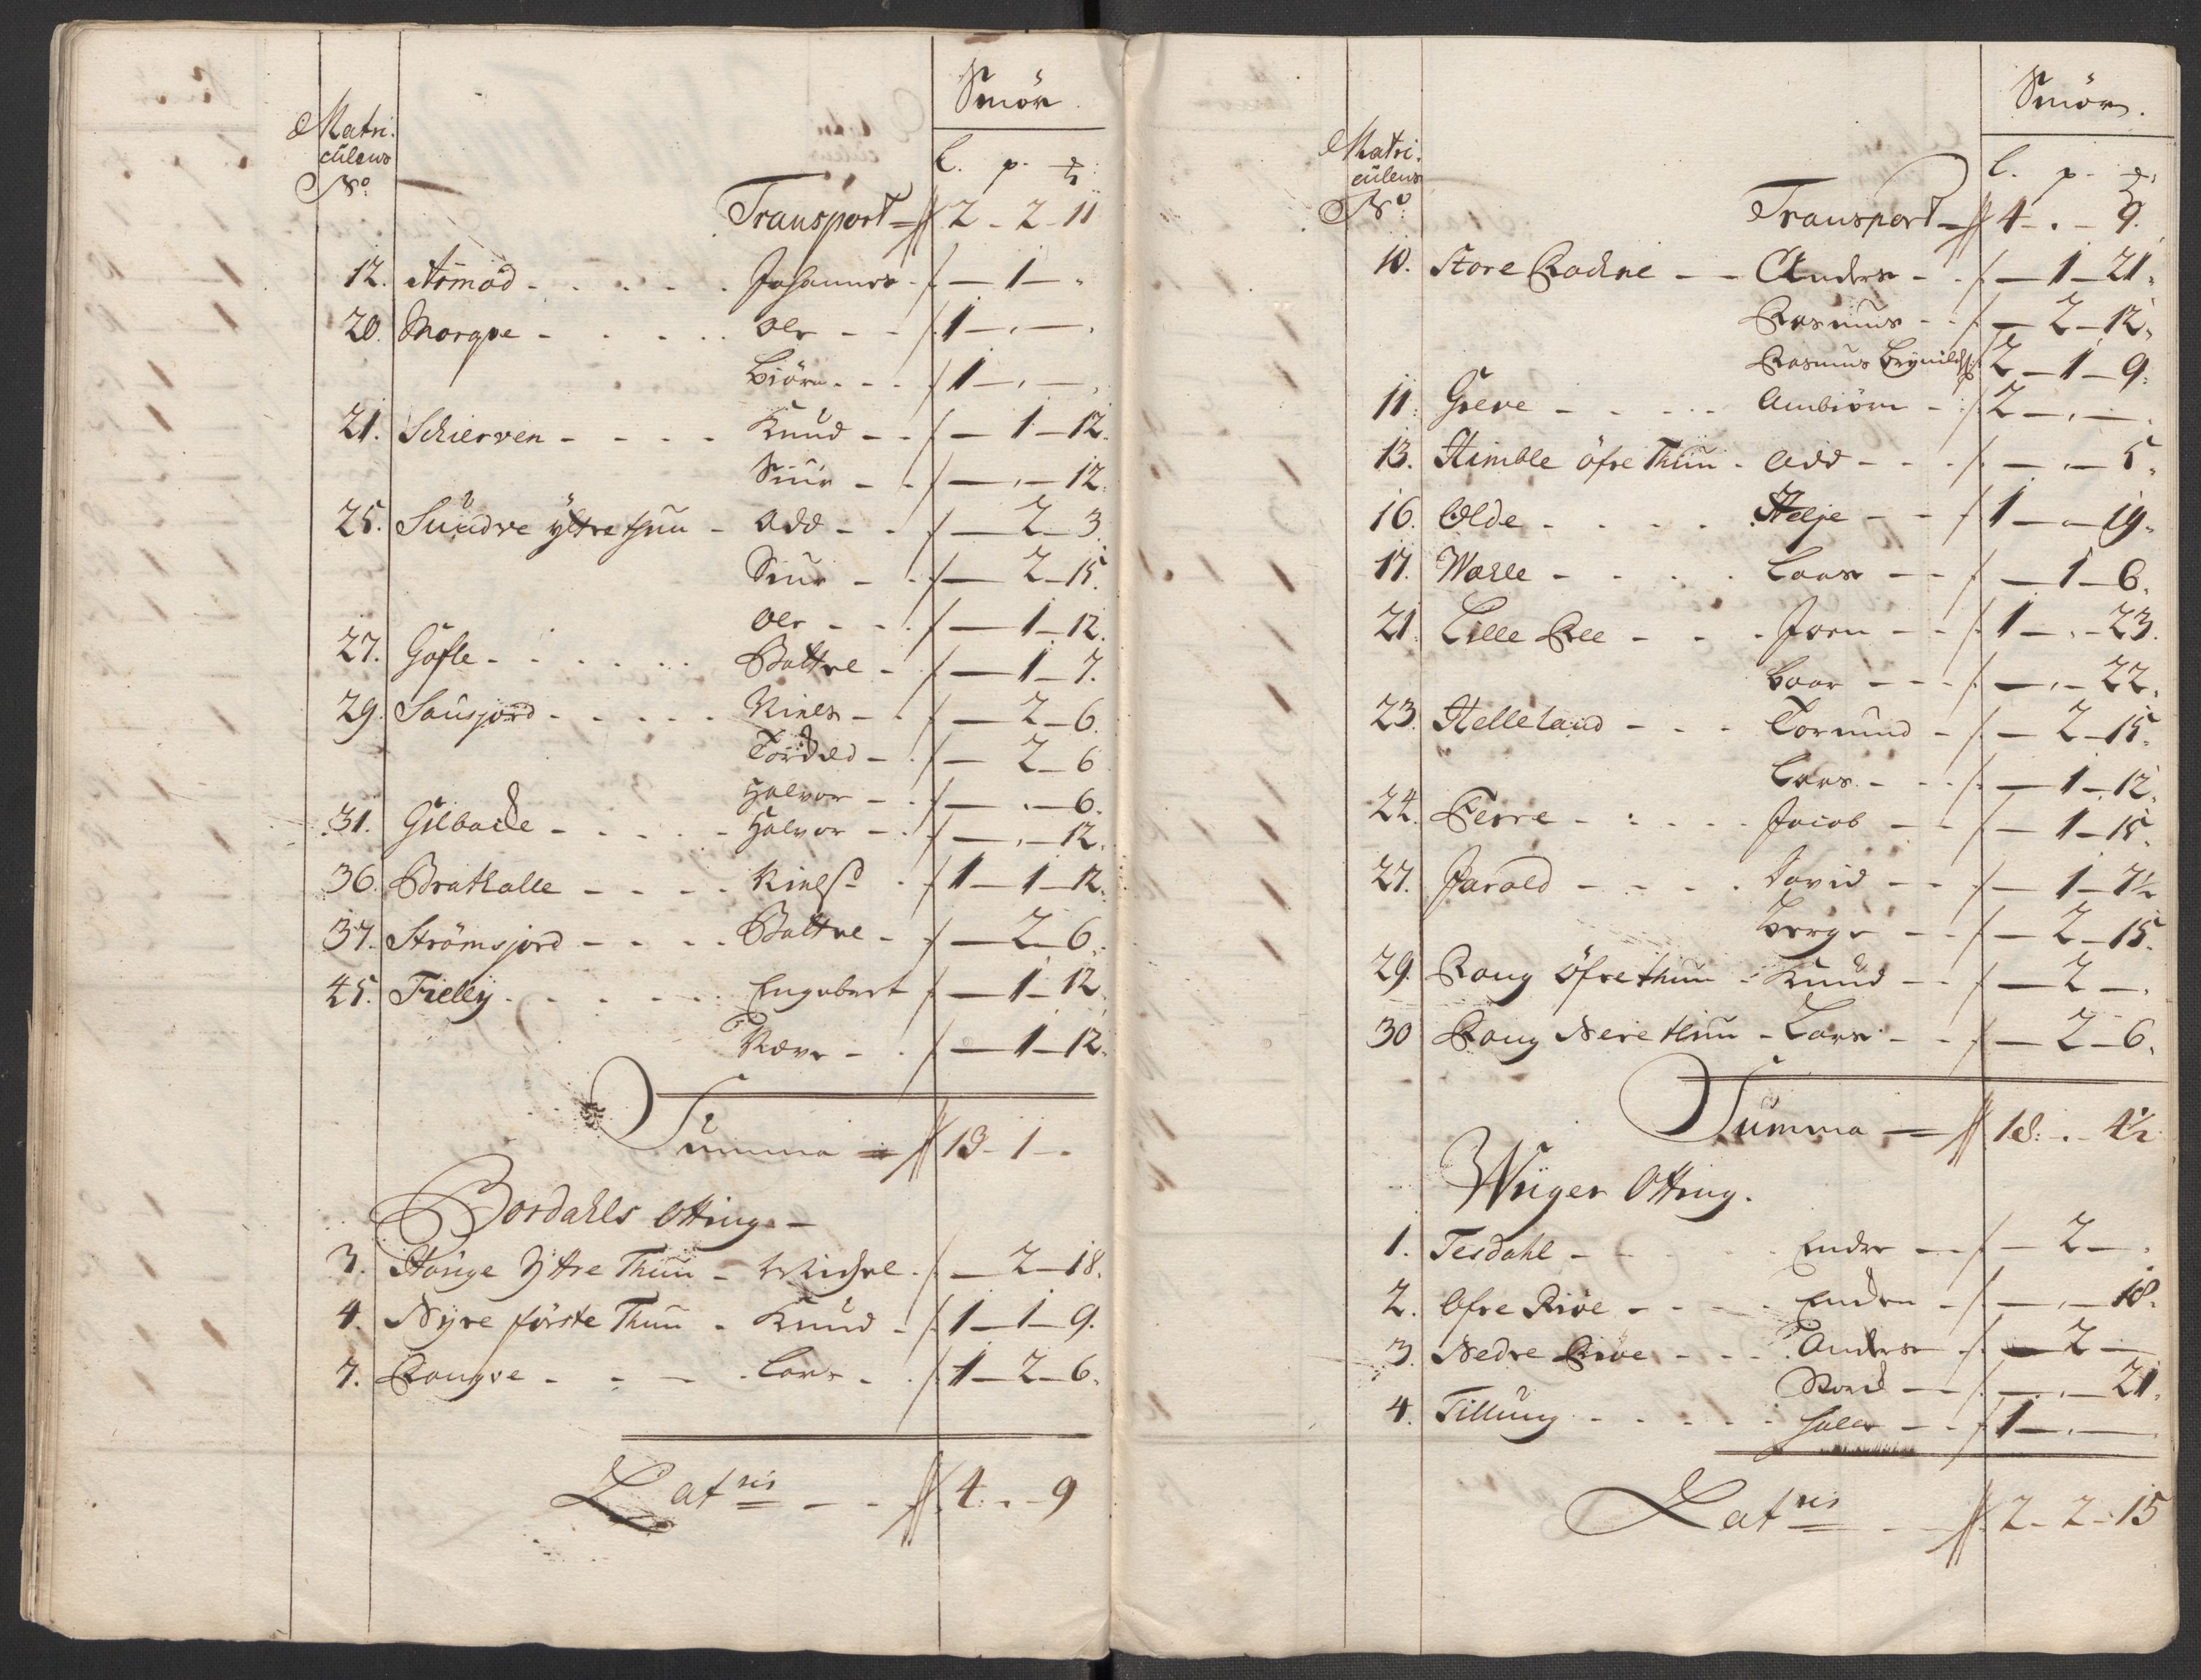 Smör.
Matri.
culens
No
L. p. ℔
Transport = 2 - 2 - 11
12. Asmød - - - Johannes - / - 1 - "
20. Morque - - - Ole - - / 1 - " - "
Biörn - - / 1 - " - "
21. Schierven - - - Knud - - / - 1 - 12.
Siur - - / - " - 12.
25. Sundve ÿttre thuu - Add - - / - 2 - 3.
Siur - - / - 2 - 15.
Ole - - / - 1 - 12.
27. Gofle - - - Baltte - / - 1 - 7.
29. Sausjord - - - Niels - - / - 2 - 6.
Torkild - / - 2 - 6
Halvor - - / - " - 6.
31. Gilbacke - - - Halvor - - / - " - 12.
36. Brathalle - - - Niels - / 1 - 1 - 12.
37. Strömsjord - - - Baltte - / - 2 - 6.
45. Fielly - - - Engebert / - 1 - 12.
- / - 1 - 12.
Summa = 13 - 1 - "
Bordahls Otting -
3. Houge Ÿttre Thuu - Michel - / - 2 - 18.
4. Nÿre förste Thuu - Knud - / 1 - 1 - 9.
7. Rongve - - - Lars - - / 1 - 2 - 6.
Latris - - 4 - " - 9
Smör.
Matri.
culens
No
L. p. ℔
Transport = 4 - " - 9.
10. Store Rochne - - Anders - - / - 1 - 21.
Rasmus - - / - 2 - 12.
Rasmus Brynilds: 2 - 1 - 9.
11. Greve - - - Ambiörn - / 2 - " - "
13. Himble öfre Thuu - Add - - / - " - 5.
16. Olde - - - Helje - - / 1 - " - 19.
17. Wæhle - - - Lars - - / - 1 - 6.
21. Lille Ree - - - Joen - - / 1 - " - 23.
Baar - - / - " - 22.
23. Helleland - - - Tormund - / - 2 - 15.
Lars - - / - 1 - 12.
24. Ferre - - - Jacob - - / - 1 - 15.
27. Jarald - - - David - - / - 1 - 7½
Børge - - / - 2 - 15.
29. Rong Öfre thuu - Knud - - / - 2 - "
30 Rong Nere thuu - Lars - - / - 2 - 6.
Summa = 18. " 4½
Wiiger Otting.
1. Tesdahl - - - Endre - - / - 2 - "
2. Öfre Riöe - - - Endre - / - " - 18.
3. Nedre Riöe - - - Anders - / - 2 - "
- - / - " - 21.
4. Tillung - - - - - / 1 - " - "
Latris - - 2 - 2 - 15